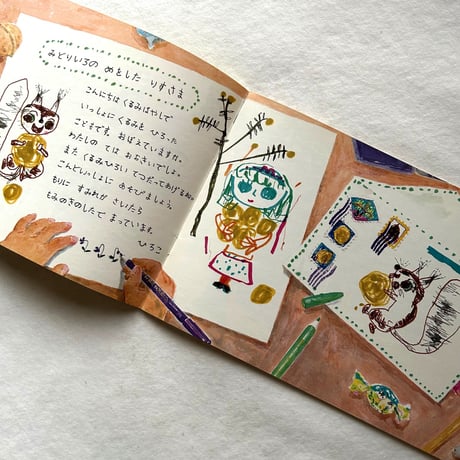 みどりいろの めをした りすさま
こんにちは くるみばやしで
いっしょに くるみを ひろった
こどもです。おぼえていますか。
わたしの ては おおきいでしょ。
また くるみひろい てつだってあげるね。
こんどいっしょに あそびましょう。
もりに すみれが さいたら
もみのきのしたで まっています。
ひろこ